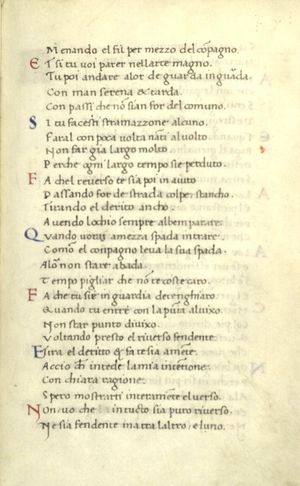 Menando el fil per mezzo del cōpagno.
Et si tu voi parer nellarte magno.
Tu poi andare alor de guarda inguāda.
Con man serena & tarda.
Con passi che nō sian for del comuno.
Si tu facesti stramazzone alcuno.
Faral con poca volta nāti al volto
Non far gia largo molto
Perche ogni largo tempo sie perduto.
Fa chel reverso te sia poi in aiuto
Passando for de strada colpe, stancho
Tirando el deritto ancho.
Avendo lochio sempre alben parare.
Quando vorai amezza spada intrare
Comō el conpagno leva la sua spada.
Alōr non stare abada
Tempo pigliar che nō te coste caro.
Fa che tu sie in guardia de cenghiaro.
Quando tu entre con la pūta al vixo.
Non star punto divixo.
Voltando presto el riverso fendente.
E tira el deritto & fa te sia amēte.
Accio chī intēde la mia intētione:
Con chiara ragione:
Spero mostrarti interamēte el verso.
Non vo che in tucto sia puro riverso,
Ne sia fendente ma tra laltro, e luno.